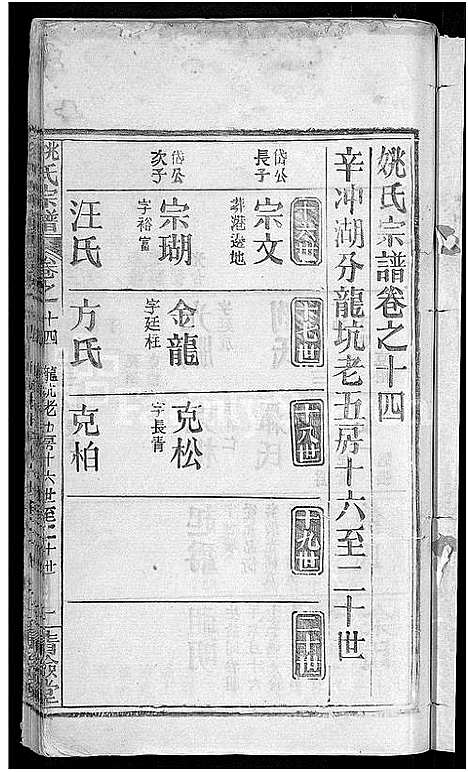 姚氏宗譜卷之十四
辛冲湖分龍坑老五房十六至二十世
十六世
十七世
十八世
十九世
二十世
岱公
長子
宗文
葬港邊地
岱公
次子
宗瑚
字裕富
金龍
字廷柱
克松
字長青
汪氏
方氏
克柏
姚氏宗譜
卷之十四
龍坑老五房十六世至二十世
一